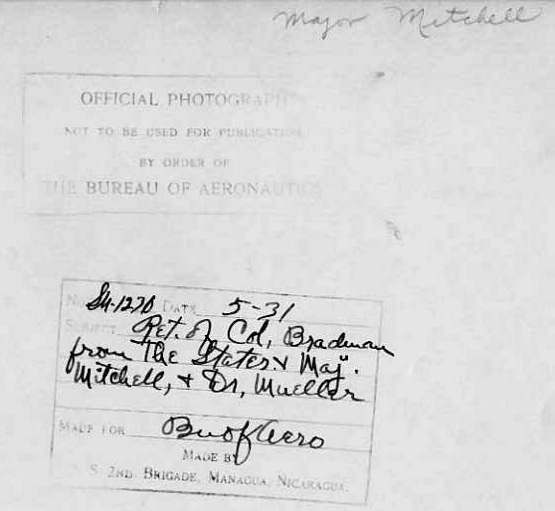 Major Mitchell
OFFICIAL PHOTOGRAPH
NOT TO BE USED FOR PUBLICATION
BY ORDER OF
THE BUREAU OF AERONAUTICS
No. DATE 5-31
SUBJECT Ret. of Col, Bradman
from The States & Maj.
Mitchell, & Dr, Mueller
MADE FOR Bu of Aero
MADE BY
S. 2ND. BRIGADE, MANAGUA, NICARAGUA.